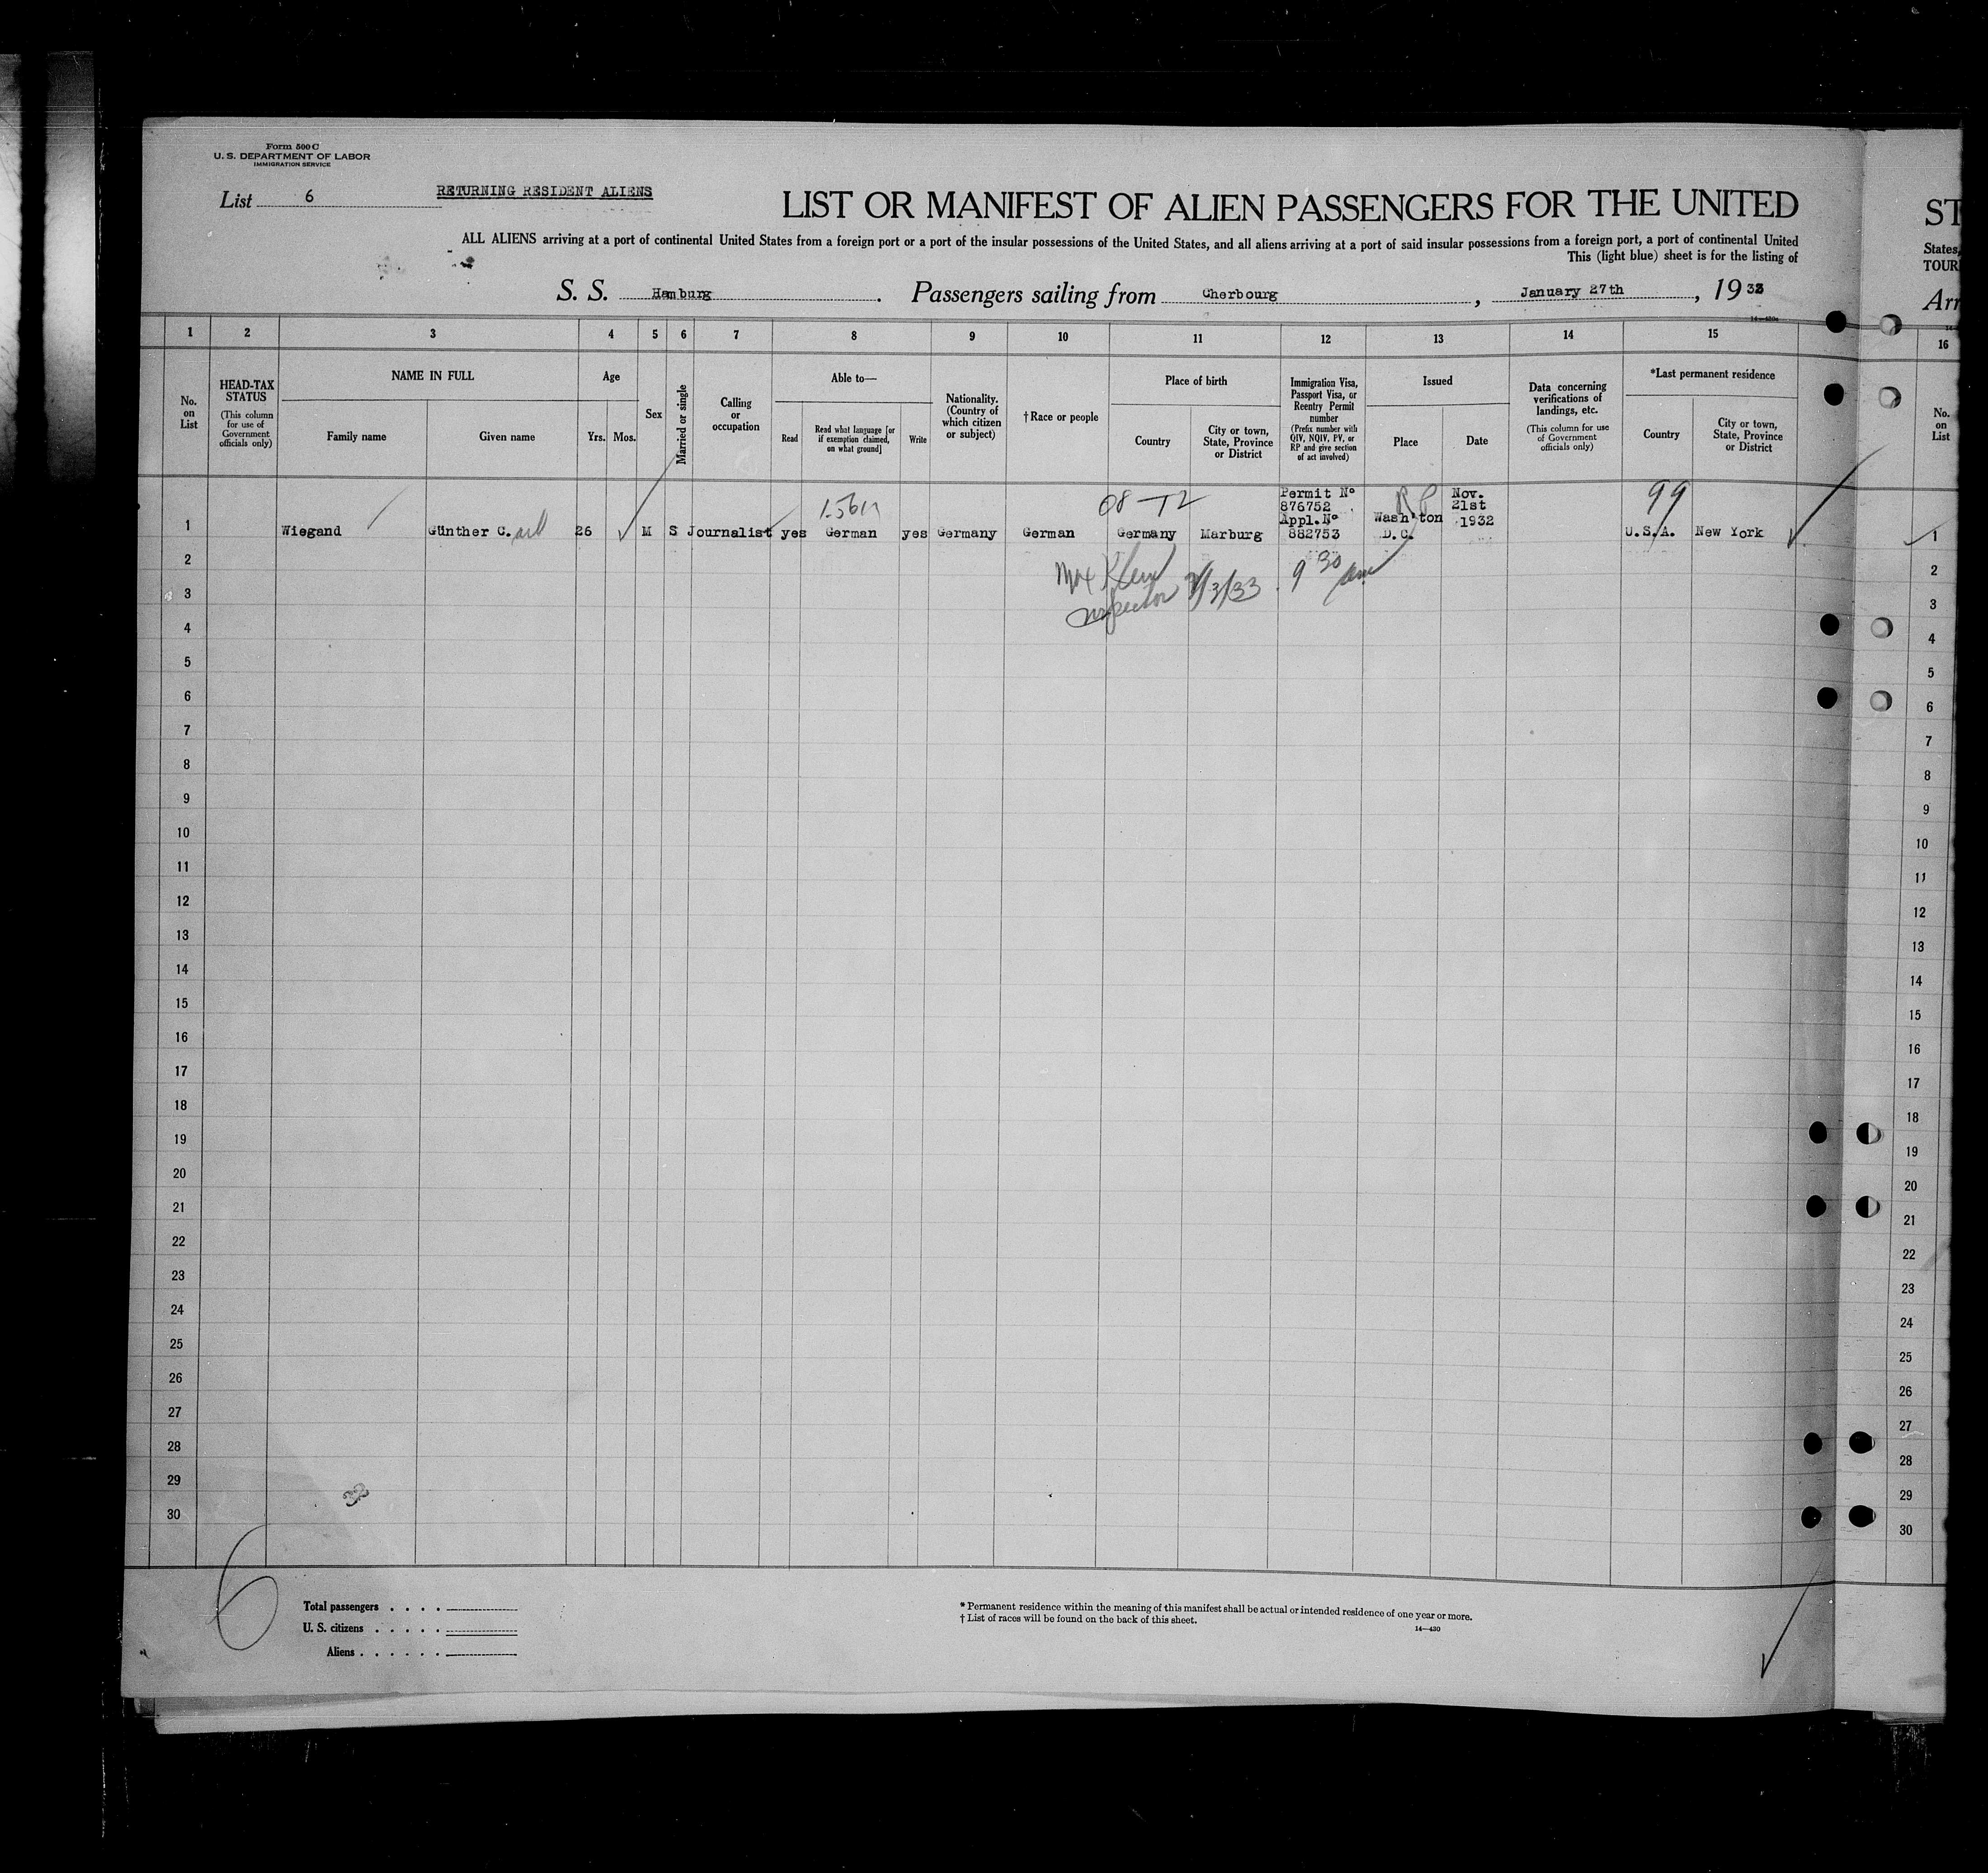 Form 500 C
U. S. DEPARTMENT OF LABOR
IMMIGRATION SERVICE
List 6
RETURNING RESIDENT ALIENS
LIST OR MANIFEST OF ALIEN PASSENGERS FOR THE UNITED
ST
ALL ALIENS arriving at a port of continental United States from a foreign port or a port of the insular possessions of the United States, and all aliens arriving at a port of said insular possessions from a foreign port, a port of continental United
States,
This (light blue) sheet is for the listing of
TOUR
S. S. Hamburg . Passengers sailing from Cherbourg , January 27th , 1933
Arr
1 2 3 4 5 6 7 8 9 10 11 12 13 14 15
16
No. on List
HEAD-TAX STATUS
(This column for use of Government officials only)
NAME IN FULL
Family name
Given name
Age
Yrs. Mos.
Sex
Married or single
Calling or occupation
Able to—
Read
Read what language [or if exemption claimed, on what ground]
Write
Nationality. (Country of which citizen or subject)
† Race or people
Place of birth
Country
City or town, State, Province or District
Immigration Visa, Passport Visa, or Reentry Permit number
(Prefix number with QIV, NQIV, PV, or RP and give section of act involved)
Issued
Place
Date
Data concerning verifications of landings, etc.
(This column for use of Government officials only)
*Last permanent residence
Country
City or town, State, Province or District
No. on List
08-72
Permit No
876752
Appl. No
882753
RP
Wash'ton
D.C.
Nov.
21st
1932
99
1 Wiegand Günther C. 26 M S Journalist yes German yes Germany German Germany Marburg U.S.A. New York
1
2
3
4
5
6
7
8
9
10
11
12
13
14
15
16
17
18
19
20
21
22
23
24
25
26
27
28
29
30
Max Klein
Inspector 2/3/33 . 9 30 am
1
2
3
4
5
6
7
8
9
10
11
12
13
14
15
16
17
18
19
20
21
22
23
24
25
26
27
28
29
30
6
Total passengers . . . .
U. S. citizens . . . . .
Aliens . . . . . .
* Permanent residence within the meaning of this manifest shall be actual or intended residence of one year or more.
† List of races will be found on the back of this sheet.
14—430